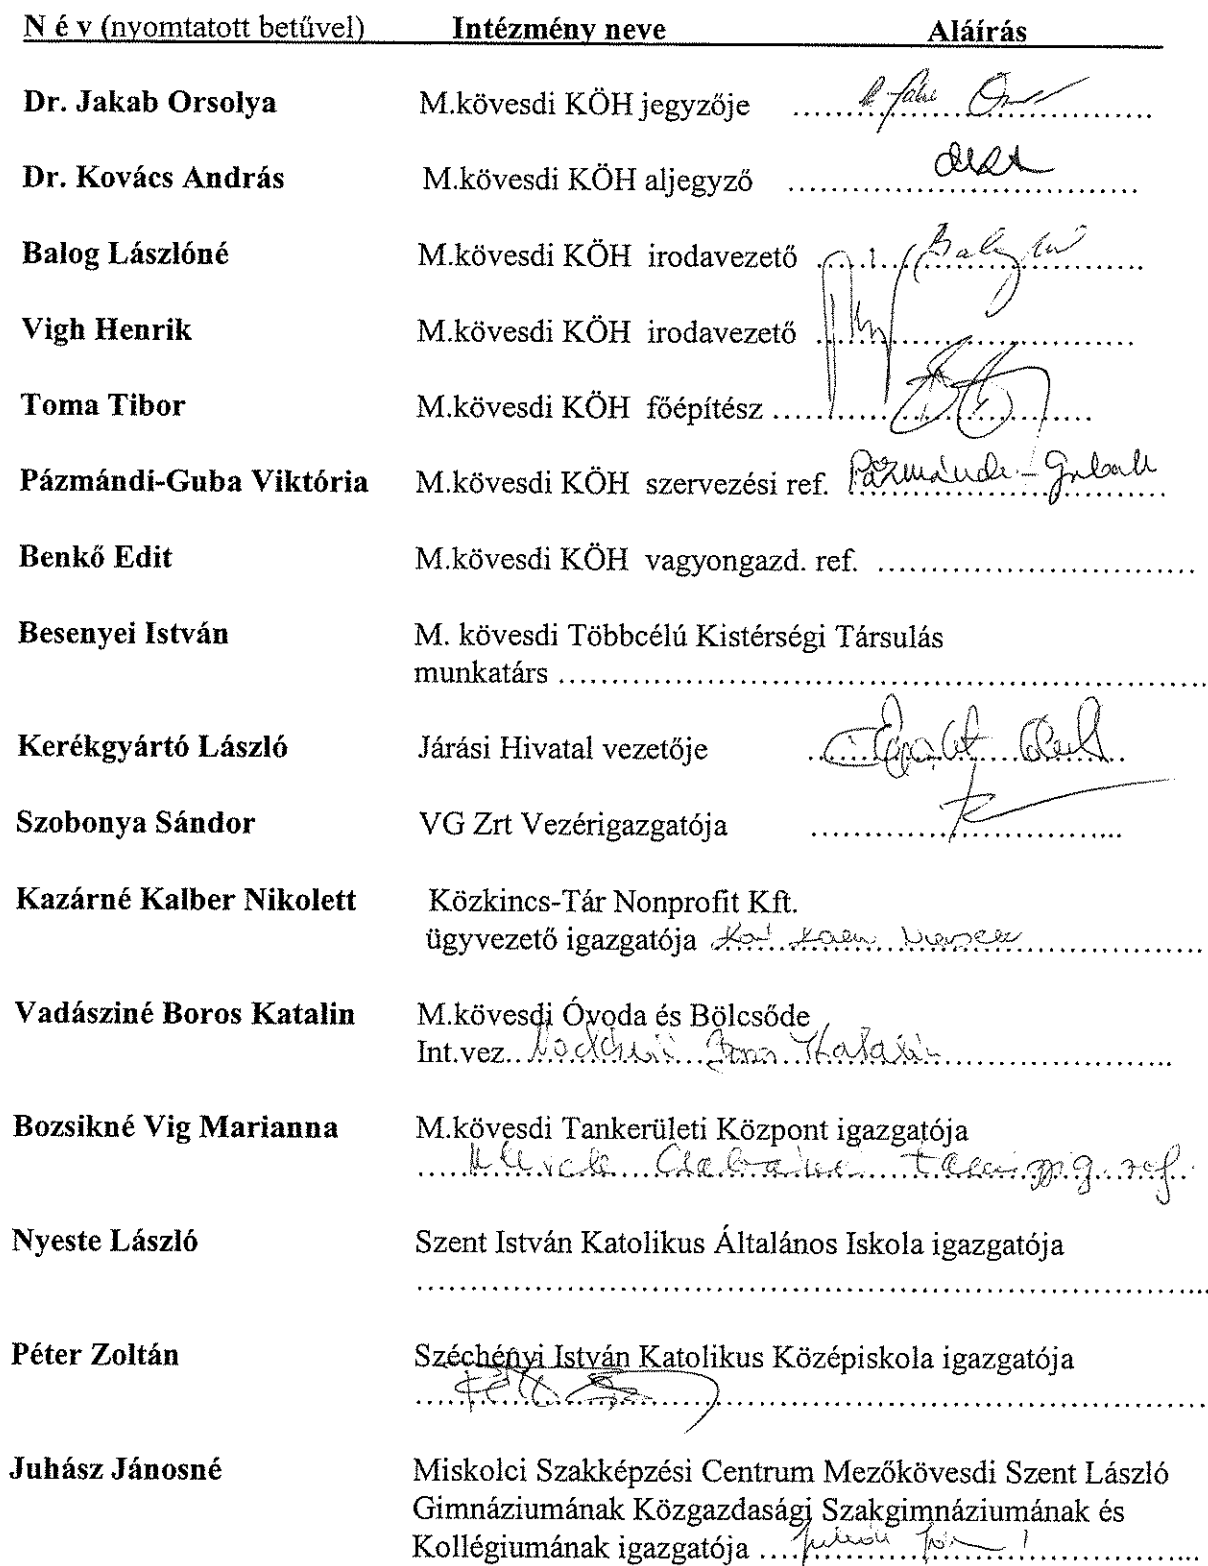 N é v (nyomtatott betűvel) Intézmény neve Aláírás
Dr. Jakab Orsolya M.kövesdi KÖH jegyzője
Dr. Kovács András M.kövesdi KÖH aljegyző
Balog Lászlóné M.kövesdi KÖH irodavezető
Vigh Henrik M.kövesdi KÖH irodavezető
Toma Tibor M.kövesdi KÖH főépítész
Pázmándi-Guba Viktória M.kövesdi KÖH szervezési ref.
Benkő Edit M.kövesdi KÖH vagyongazd. ref.
Besenyei István M. kövesdi Többcélú Kistérségi Társulás
munkatárs
Kerékgyártó László Járási Hivatal vezetője
Szobonya Sándor VG Zrt Vezérigazgatója
Kazárné Kalber Nikolett Közkincs-Tár Nonprofit Kft.
ügyvezető igazgatója
Vadásziné Boros Katalin M.kövesdi Óvoda és Bölcsőde
Int.vez. Boros Katalin
Bozsikné Vig Marianna M.kövesdi Tankerületi Központ igazgatója
ref.
Nyeste László Szent István Katolikus Általános Iskola igazgatója
Péter Zoltán Széchényi István Katolikus Középiskola igazgatója
Juhász Jánosné Miskolci Szakképzési Centrum Mezőkövesdi Szent László
Gimnáziumának Közgazdasági Szakgimnáziumának és
Kollégiumának igazgatója